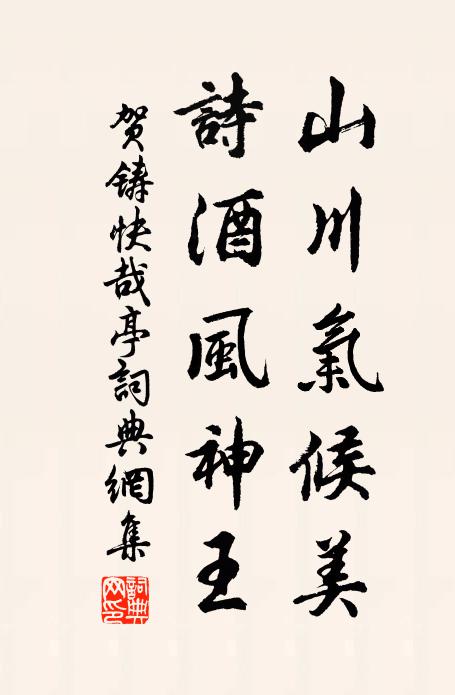 山川氣候美
詩酒風神王
贺鑄快哉亭詞典網集
詞典网印